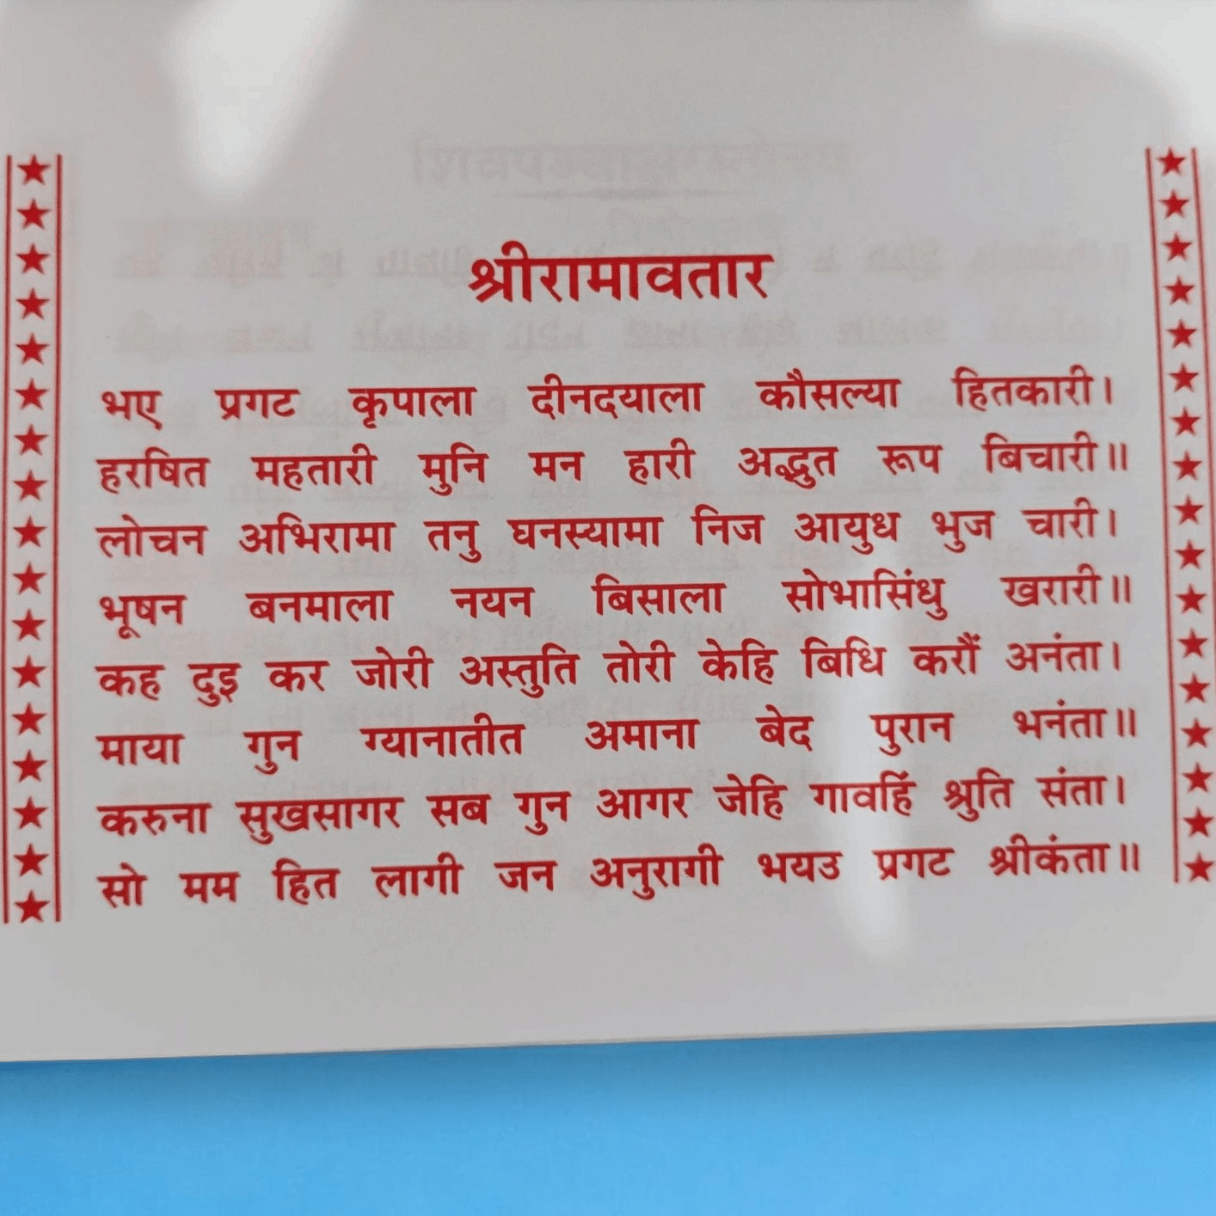 श्रीरामावतार
भए प्रगट कृपाला दीनदयाला कौसल्या हितकारी।
हरषित महतारी मुनि मन हारी अद्भुत रूप बिचारी॥
लोचन अभिरामा तनु घनस्यामा निज आयुध भुज चारी।
भूषन बनमाला नयन बिसाला सोभासिंधु खरारी॥
कह दुइ कर जोरी अस्तुति तोरी केहि बिधि करौं अनंता।
माया गुन ग्यानातीत अमाना बेद पुरान भनंता॥
करुना सुखसागर सब गुन आगर जेहि गावहिं श्रुति संता।
सो मम हित लागी जन अनुरागी भयउ प्रगट श्रीकंता॥